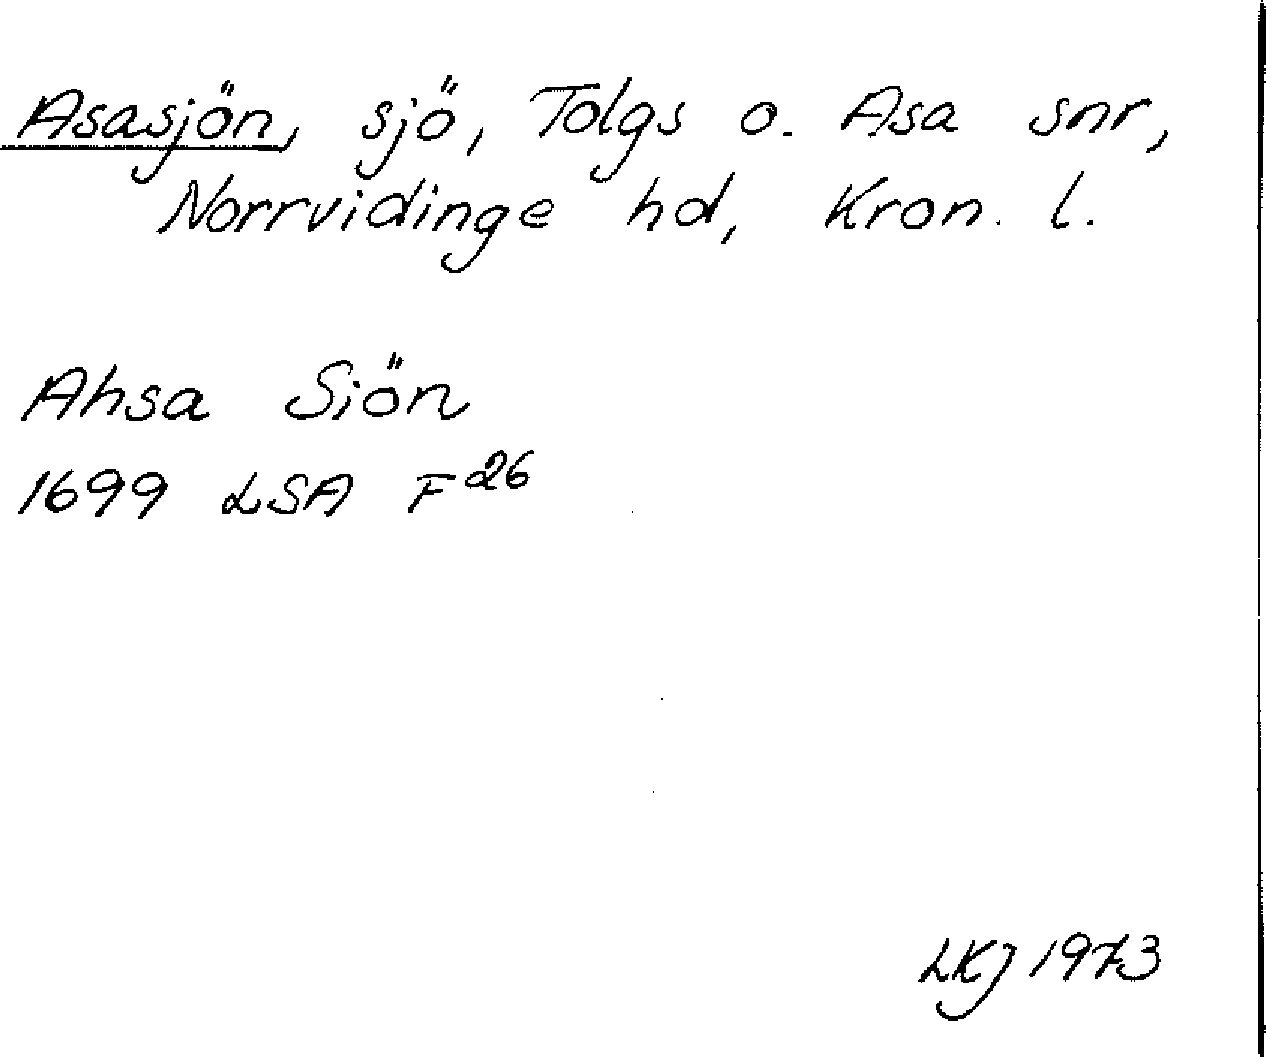 Asasjön, sjö, Tolgs o. Asa snr,
Norrvidinge hd, Kron. l.
Ahsa Siön
1699 LSA F26
LKJ 1973